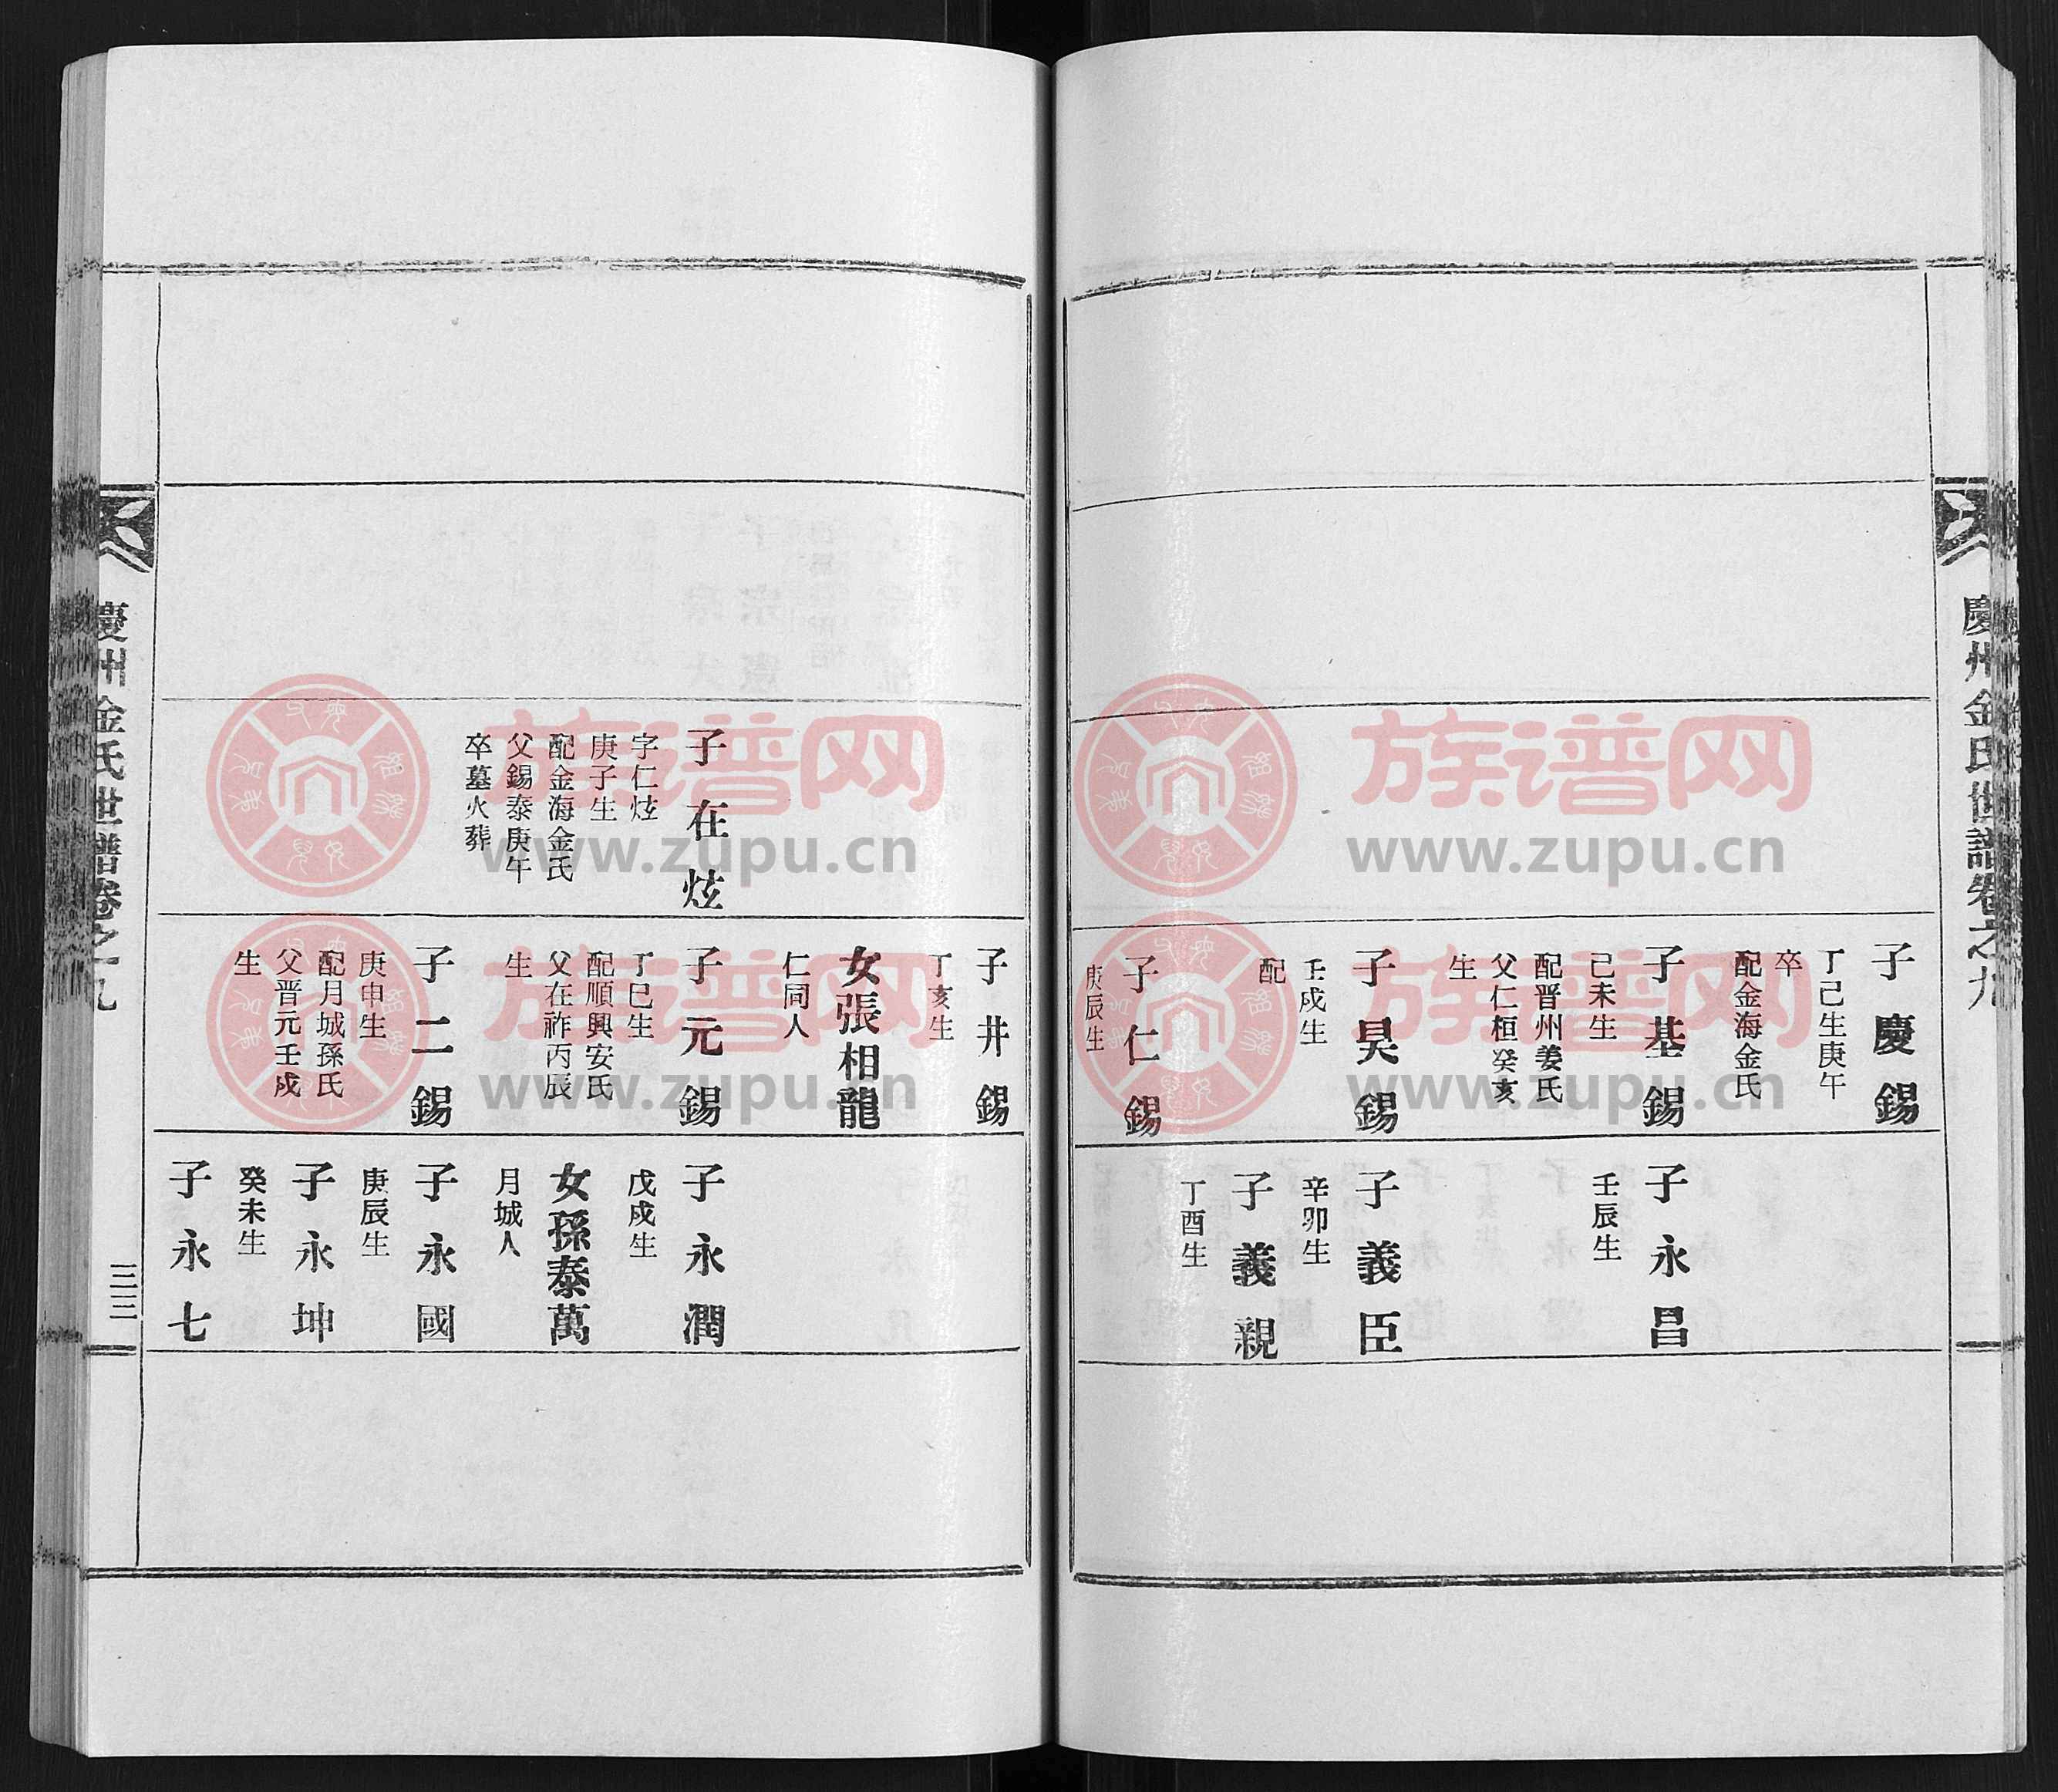 慶州金氏世譜卷之九
子慶錫
丁己生庚午
卒
配金海金氏
子基錫
己未生
配晋州姜氏
父仁桓癸亥
生
子昊錫
壬戌生
配
子仁錫
庚辰生
子永昌
壬辰生
子義臣
辛卯生
子義親
丁酉生
子在炫
字仁炫
庚子生
配金海金氏
父錫泰庚午
卒墓火葬
子井錫
丁亥生
女張相龍
仁同人
子元錫
丁巳生
配順興安氏
父在祚丙辰
生
子二錫
庚申生
配月城孫氏
父晋元壬戌
生
子永潤
戊戌生
女孫泰萬
月城人
子永國
庚辰生
子永坤
癸未生
子永七
慶州金氏世譜卷之九
三三
族谱网
www.zupu.cn
族谱网
www.zupu.cn
族谱网
www.zupu.cn
族谱网
www.zupu.cn